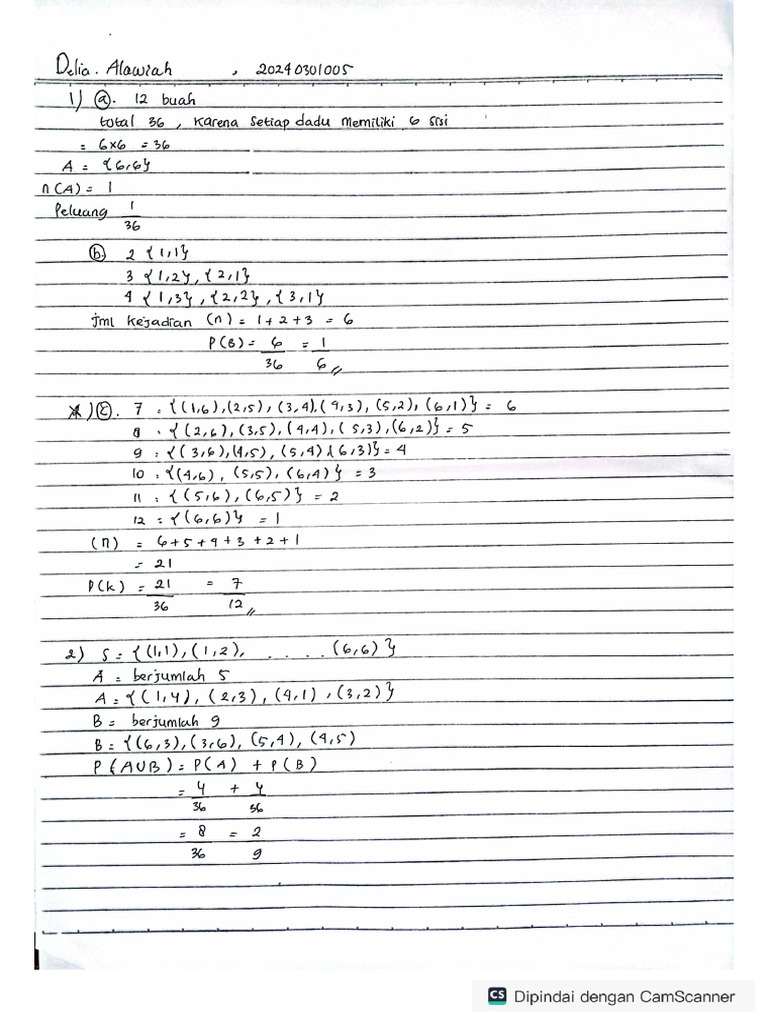 Delia. Alawiah , 20240301005
1) a. 12 buah
total 36 , karena setiap dadu memiliki 6 sisi
= 6x6 = 36
A = {6,6}
n(A) = 1
Peluang 1/36
b. 2 {1,1}
3 {1,2}, {2,1}
4 {1,3}, {2,2}, {3,1}
jml kejadian (n) = 1+2+3 = 6
P(B) = 6/36 = 1/6 //
) C. 7 = {(1,6),(2,5), (3,4),(4,3), (5,2), (6,1)} = 6
8 = {(2,6), (3,5), (4,4), (5,3), (6,2)} = 5
9 = {(3,6),(4,5), (5,4) (6,3)} = 4
10 = {(4,6), (5,5), (6,4)} = 3
11 = {(5,6), (6,5)} = 2
12 = {(6,6)} = 1
(n) = 6+5+4+3+2+1
= 21
P(k) = 21/36 = 7/12 //
2) S = {(1,1), (1,2), . . . . (6,6)}
A = berjumlah 5
A = {(1,4), (2,3), (4,1), (3,2)}
B = berjumlah 9
B = {(6,3), (3,6), (5,4), (4,5)
P(AUB) = P(A) + P(B)
= 4/36 + 4/36
= 8/36 = 2/9
CS Dipindai dengan CamScanner